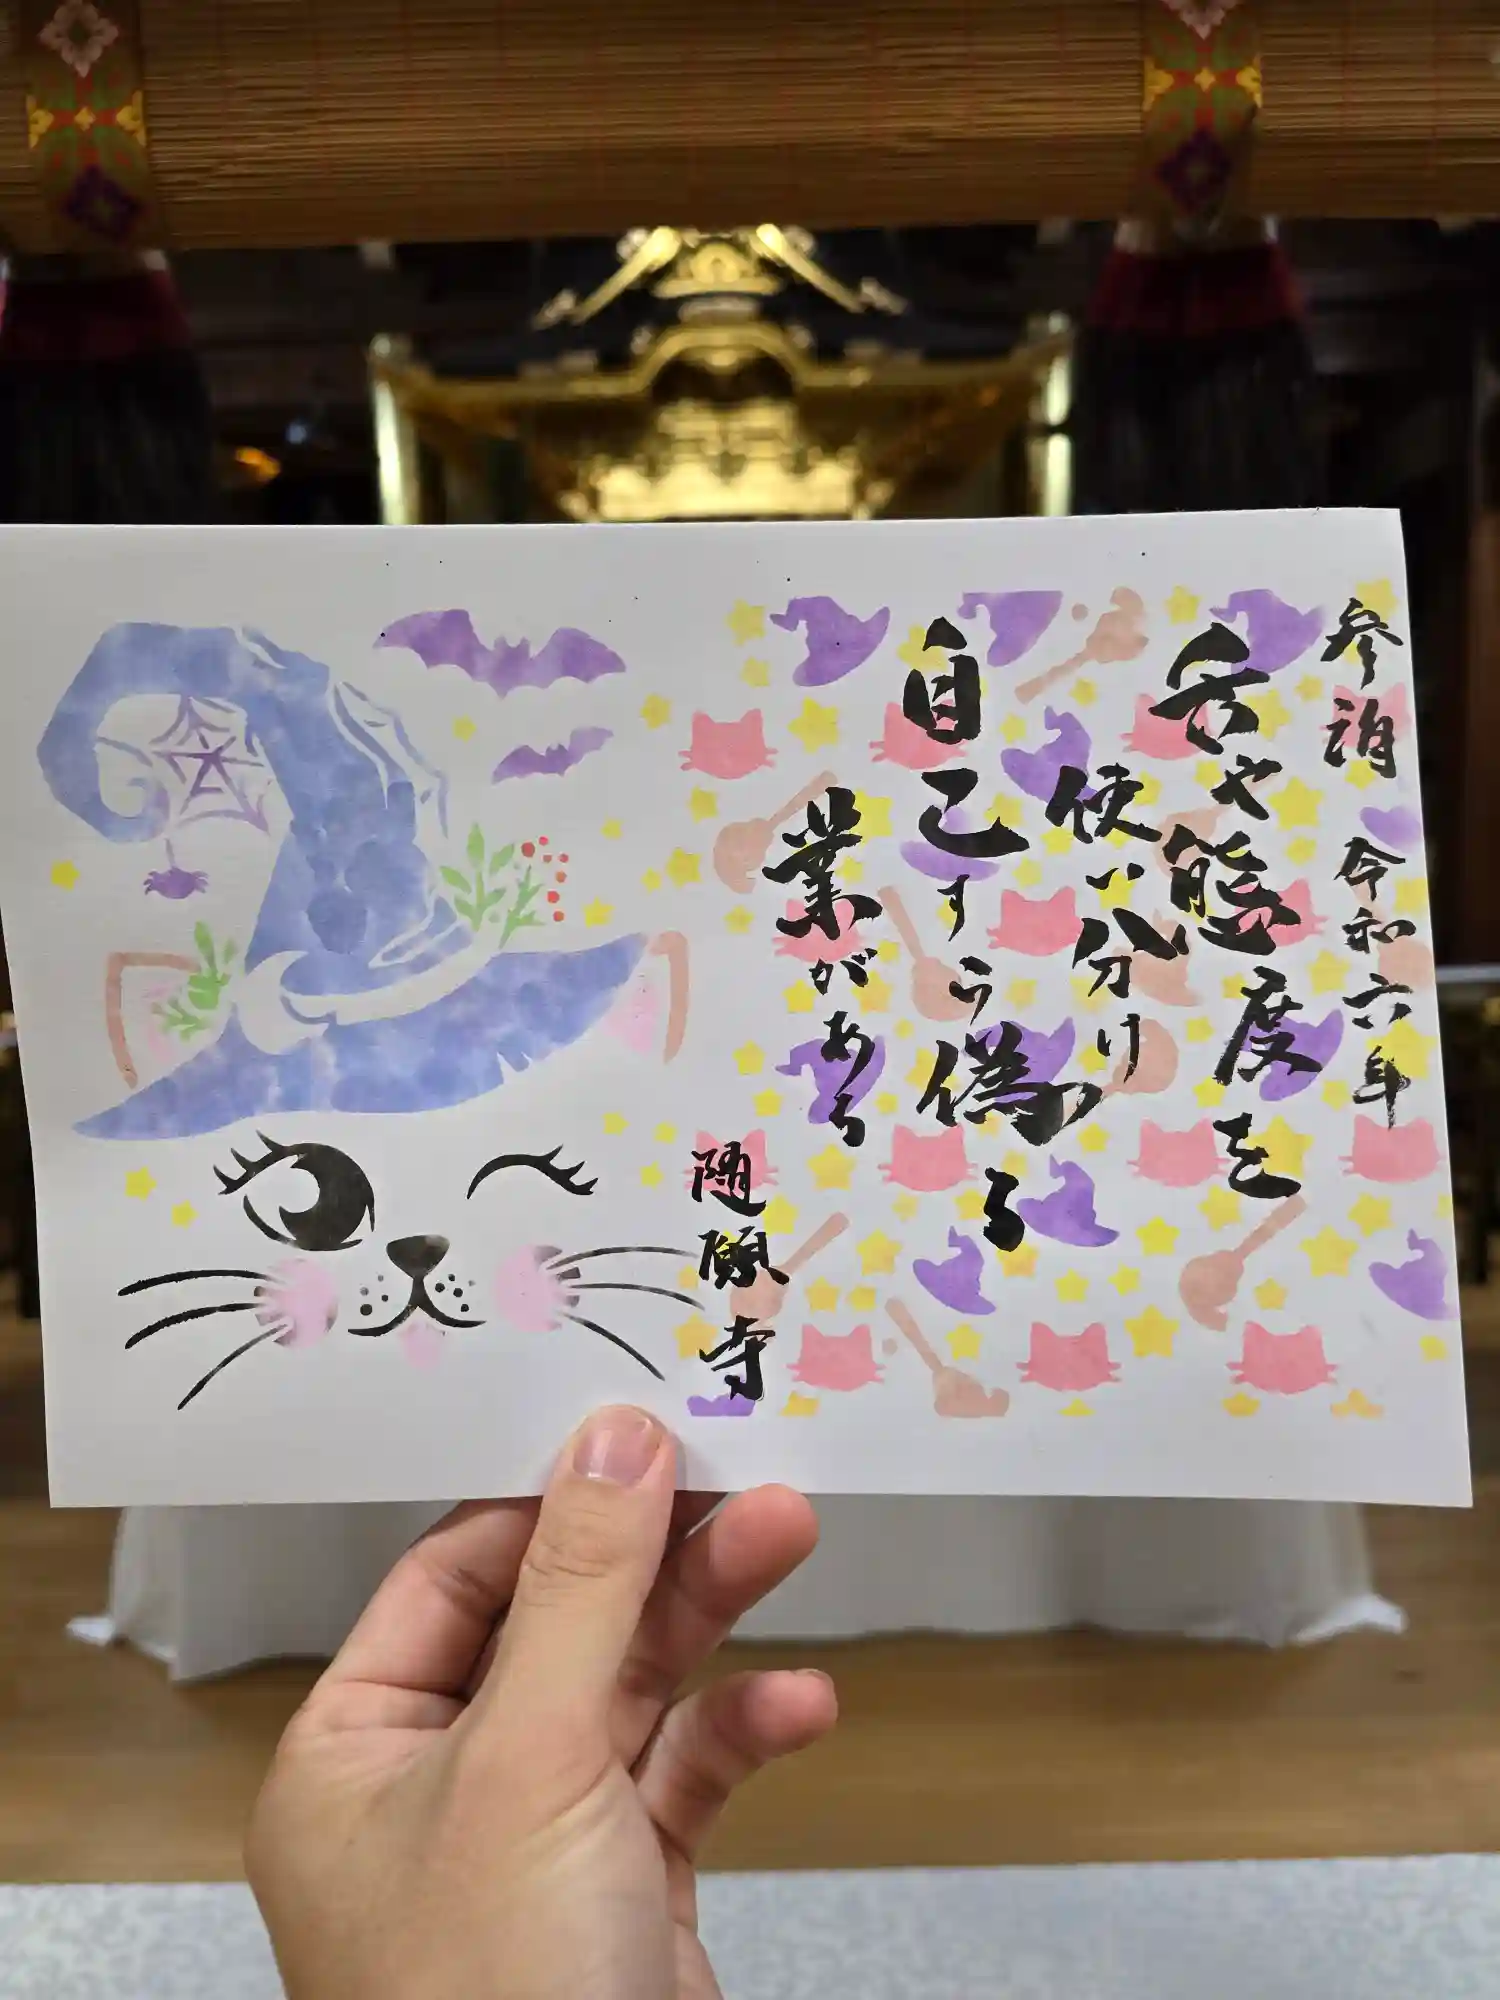 参詣 令和六年
舌や態度を
使い分け
自己すら偽る
業がある
随願寺